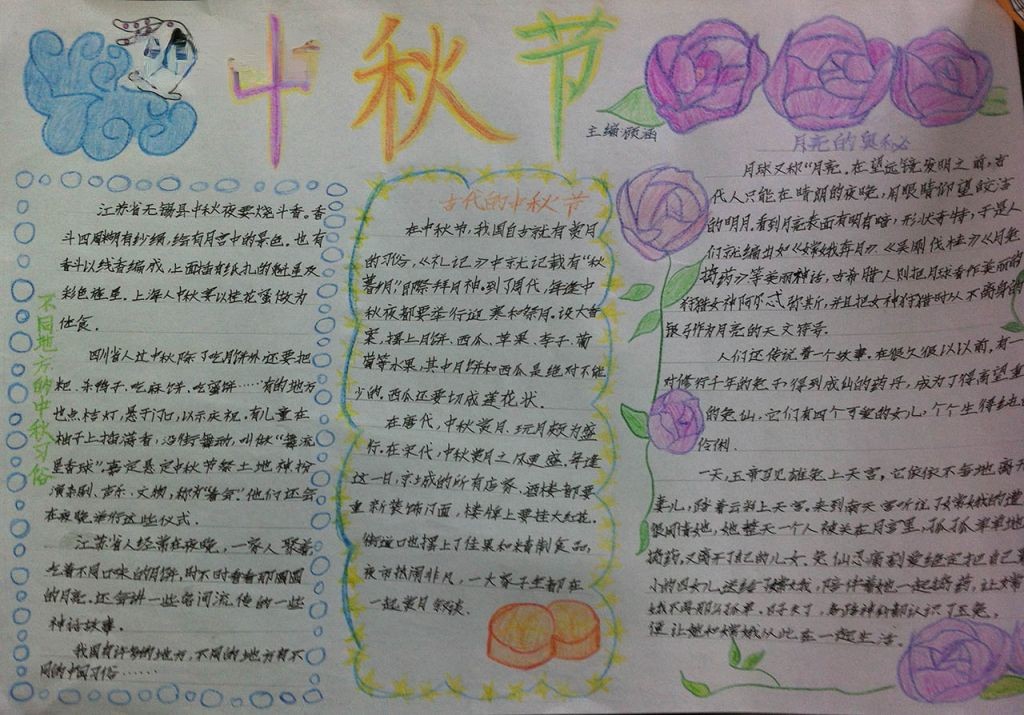 中秋节
主编:顾涵
不同地方的中秋习俗
江苏省无锡县中秋夜要烧斗香。香
斗四周糊有纱绸,绘有月宫中的景色。也有
香斗以线香编成,上面插有纸扎的魁星及
彩色旌星。上海人中秋宴以桂花蜜做为
佐食。
四川省人过中秋除了吃月饼外还要把
粑、杀鸭子、吃麻饼、吃蜜饼……有的地方
也点桔灯,悬于门口,以示庆祝。有儿童在
柚子上插满香,沿街舞动,叫做"舞流
星香球"。嘉定县定中秋节祭土地神扮
演杂剧、声乐、文物,称为"看会"他们还会
在夜晚举行这些仪式。
江苏省人经常在夜晚,一家人聚着
吃着不同口味的月饼,时不时看看那圆圆
的月亮。还会讲一些民间流传的一些
神话故事。
我国有许多的地方,不同的地方有不
同的中国习俗……
古代的中秋节
在中秋节,我国自古就有赏月
的习俗,《礼记》中就记载有"秋
暮夕月"即祭拜月神。到了周代,每逢中
秋夜都要举行迎寒和祭月。设大香
案,摆上月饼、西瓜、苹果、李子、葡
萄等水果,其中月饼和西瓜是绝对不能
少的。西瓜还要切成莲花状。
在唐代,中秋赏月、玩月颇为盛
行。在宋代,中秋赏月之风更盛,每逢
这一日,京城的所有店家、酒楼都要
重新装饰门面,楼牌上要挂大红花。
街道口也摆上了佳果和精制食品,
夜市热闹非凡,一大家子坐都在
一起赏月叙谈。
月亮的奥秘
月球又称"月亮。在望远镜发明之前,古
代人只能在晴朗的夜晚,用眼睛仰望皎洁
的明月。看到月亮表面有明有暗,形状奇特,于是人
们就编出如《嫦娥奔月》《吴刚伐桂》《月兔
捣药》等美丽神话。古希腊人则把月球看作美丽的
狩猎女神阿尔忒弥斯,并且把女神狩猎时从不离身的
银弓作为月亮的天文符号。
人们还传说着一个故事。在很久很以以前,有一
对修行千年的兔子,得到成仙的药丹,成为了得高望重
的兔仙。它们有四个可爱的女儿,个个生得
伶俐。
一天,玉帝召见雄兔上天宫,它依依不舍地离开
妻儿,踏着云彩上天宫。来到南天宫听说了嫦娥的遭
她整天一个人被关在月宫里,孤孤单单地
捣药,又离开了自己的儿女。兔仙忍痛割爱绝定把自己
小的四女儿送给了嫦娥,陪伴着她一起捣药,让嫦
娥不再那么孤单。
便让她和嫦娥从此在一起生活。